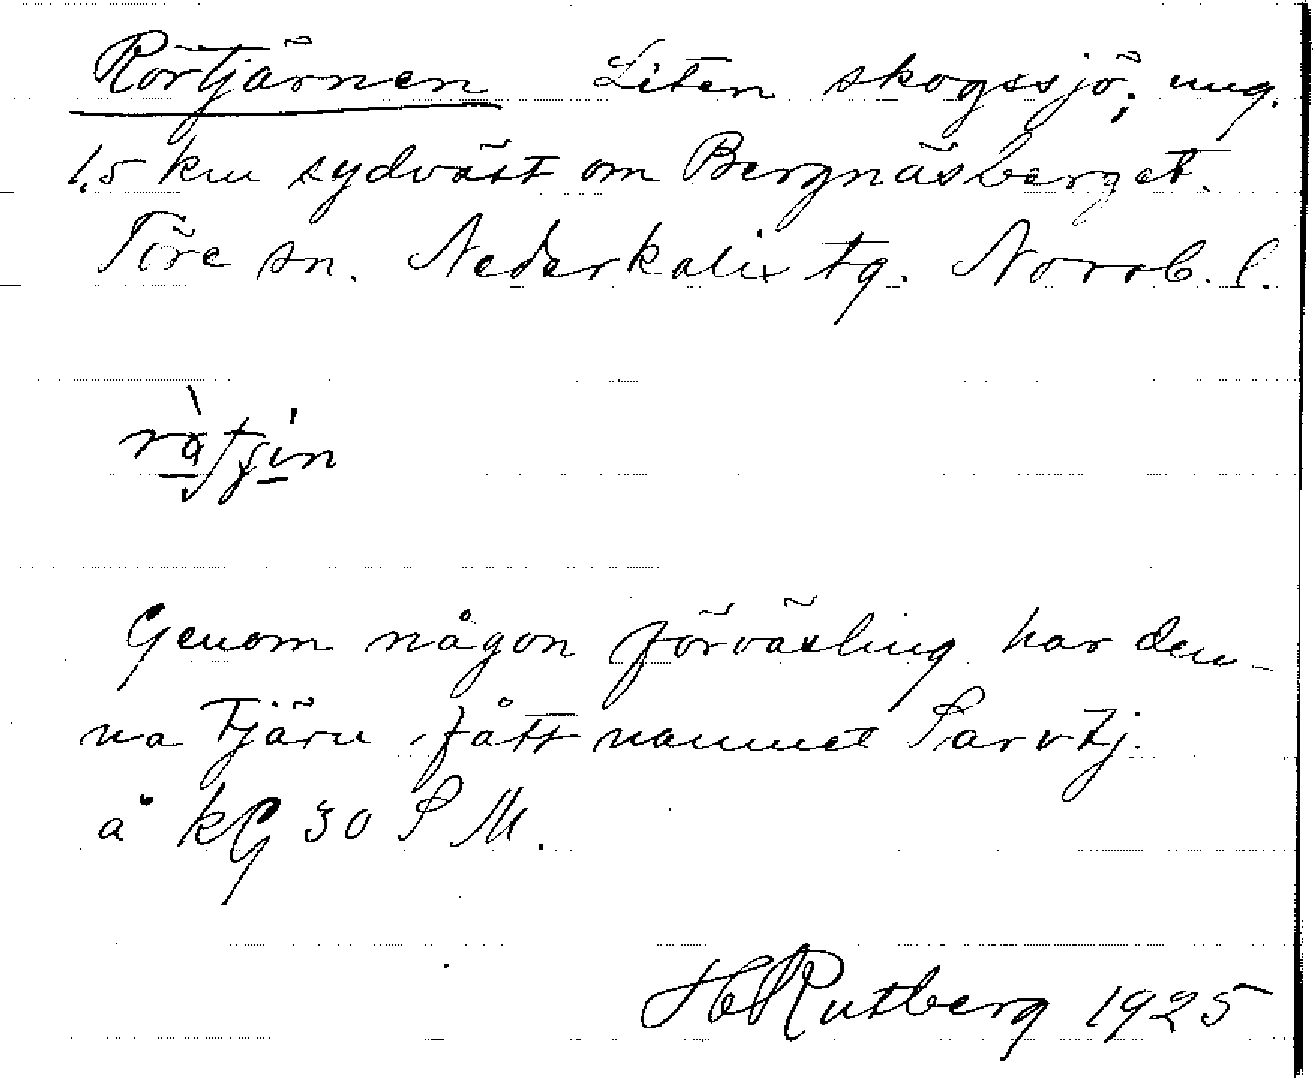 Rörtjärnen Liten skogssjö; ung.
1,5 km sydväst om Bergnäsberget.
Töre sn. Nederkalix tg. Norrb. l.
Genom någon förväxling har den-
na tjärn fått namnet Sarvtj.
å kG 30 S M.
H Rutberg 1925